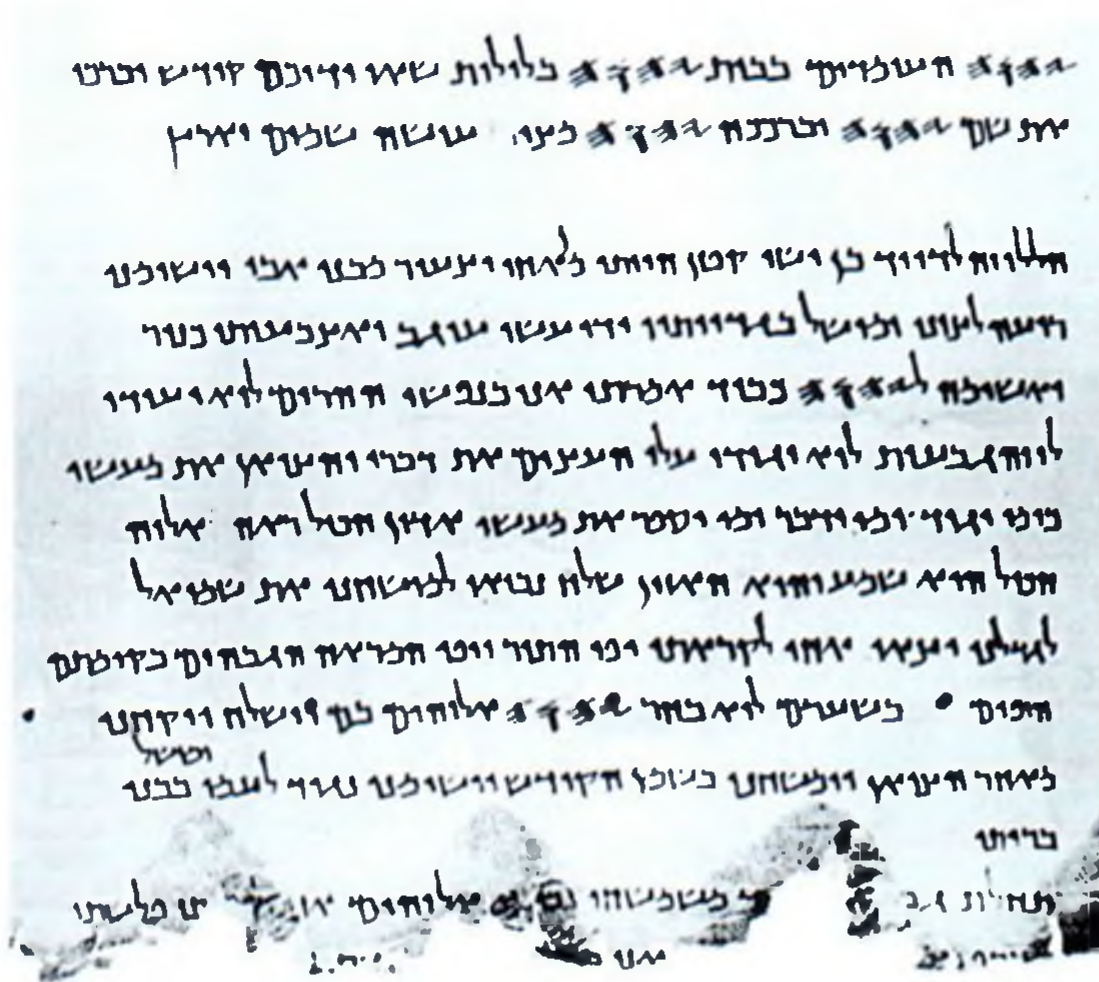 𐤉𐤄𐤅𐤄 העומדים בבית 𐤉𐤄𐤅𐤄 בלילות שאו ידיכם קודש וברכו
את שם 𐤉𐤄𐤅𐤄 יברככה 𐤉𐤄𐤅𐤄 מציון עושה שמים וארץ
הללויה לדויד בן ישי קטן הייתי מן אחי וצעיר מבני אבי וישימני
רועה לצונו ומושל בגדיותיו ידי עשו עוגב ואצבעותי כנור
ואשימה ל𐤉𐤄𐤅𐤄 כבוד אמרתי אני בנפשי ההרים לוא יעידו
לו והגבעות לוא יגידו עלו העצים את דברי והצואן את מעשי
כי מי יגיד ומי ידבר ומי יספר את מעשי אדון הכול ראה אלוה
הכול הוא שמע והוא האזין שלח נביאו למושחני את שמואל
לגדלני יצאו אחי לקראתו יפי התור ויפי המראה הגבהים בקומתם
היפים בשערם לוא בחר 𐤉𐤄𐤅𐤄 אלוהים בם וישלח ויקחני
ומושל
מאחר הצואן וימשחני בשמן הקודש וישימני נגיד לעמו בבני
בריתו
תחלת משמשחו אלוהים פלשתי